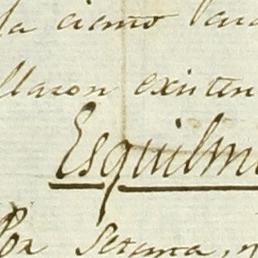 la ciento
llaron existen
Esquilm
Por Setena,